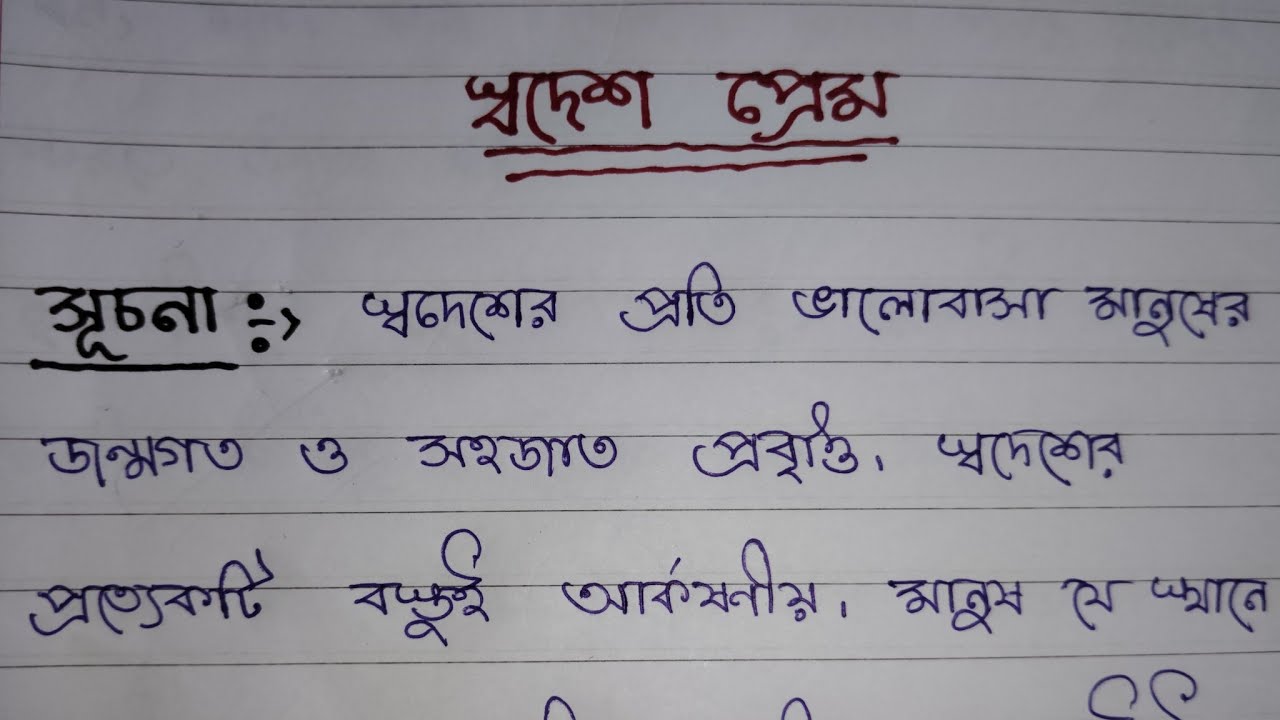 স্বদেশ প্রেম
সূচনা :-> স্বদেশের প্রতি ভালোবাসা মানুষের
জন্মগত ও সহজাত প্রবৃত্তি। স্বদেশের
প্রত্যেকটি বস্তুই আর্কষনীয়। মানুষ যে স্থানে